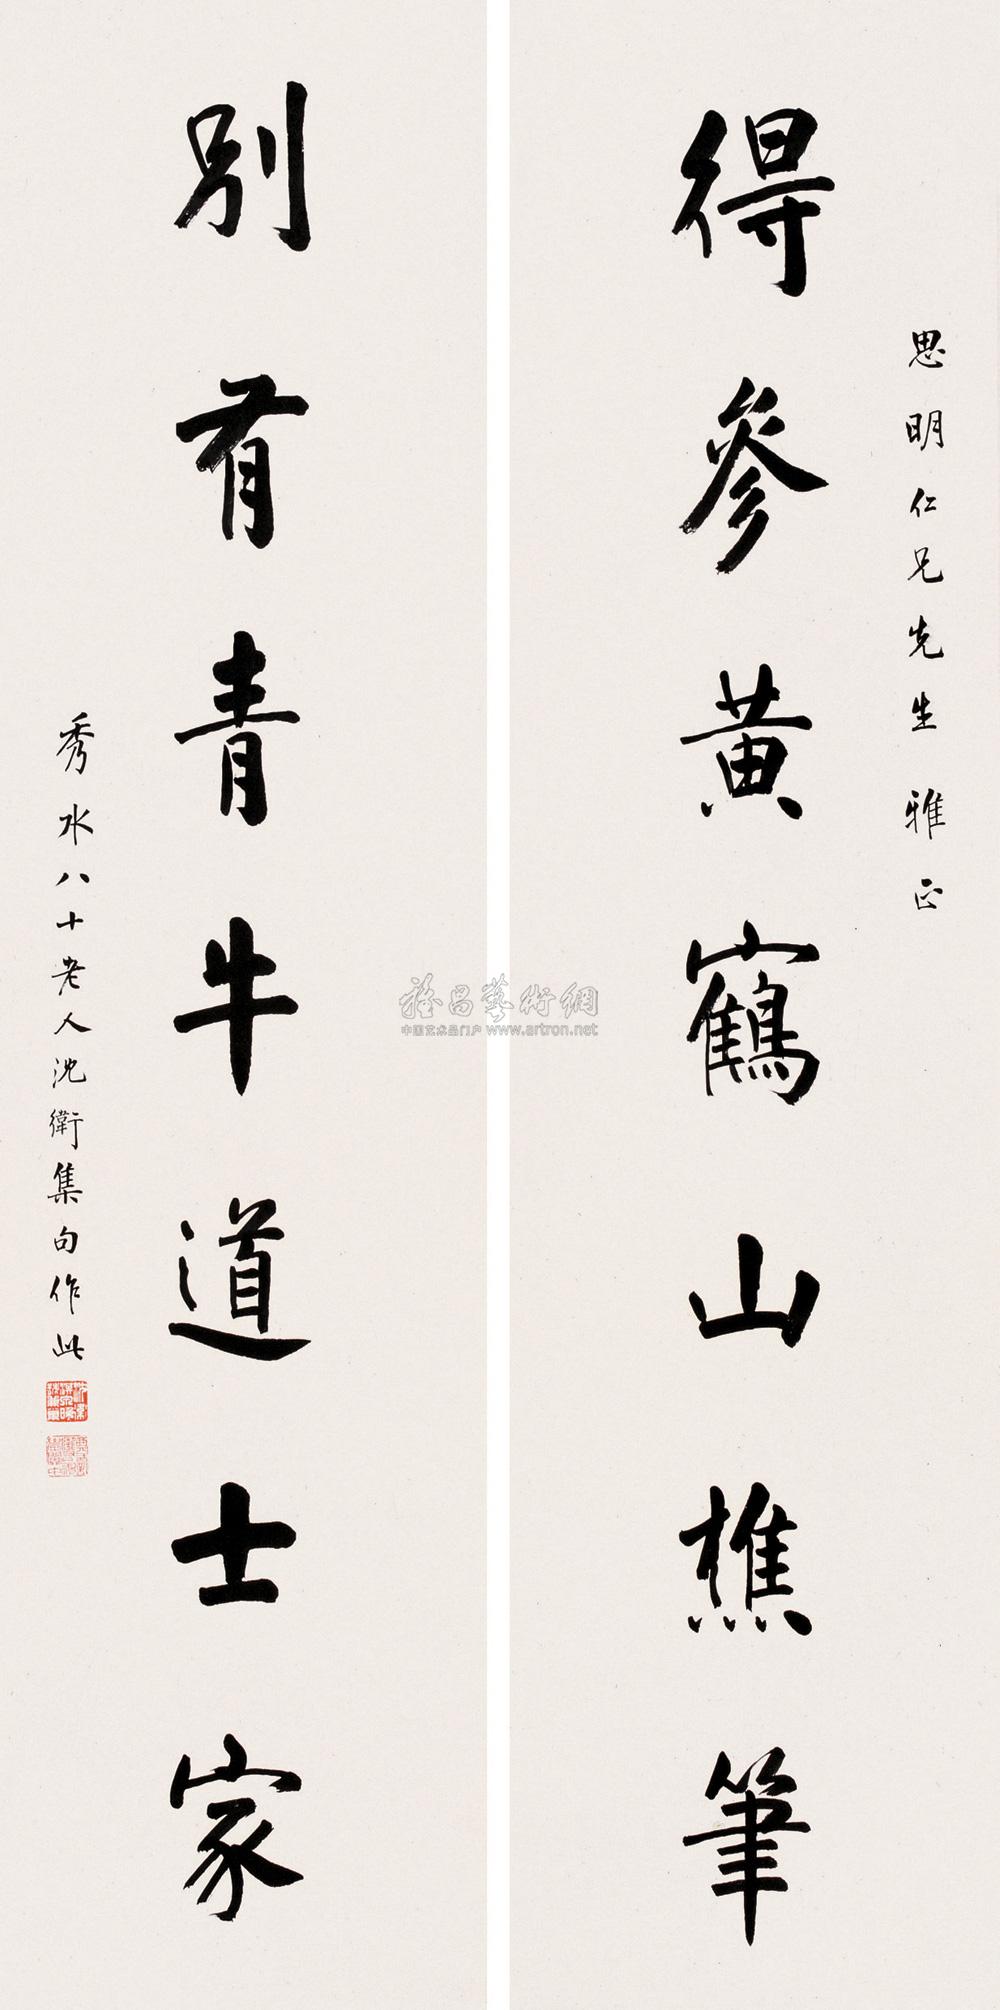 思明仁兄先生 雅正
得參黃鶴山樵筆
別有青牛道士家
秀水八十老人沈衛集句作此
雅昌藝術網
中国艺术品门户 www.artron.net